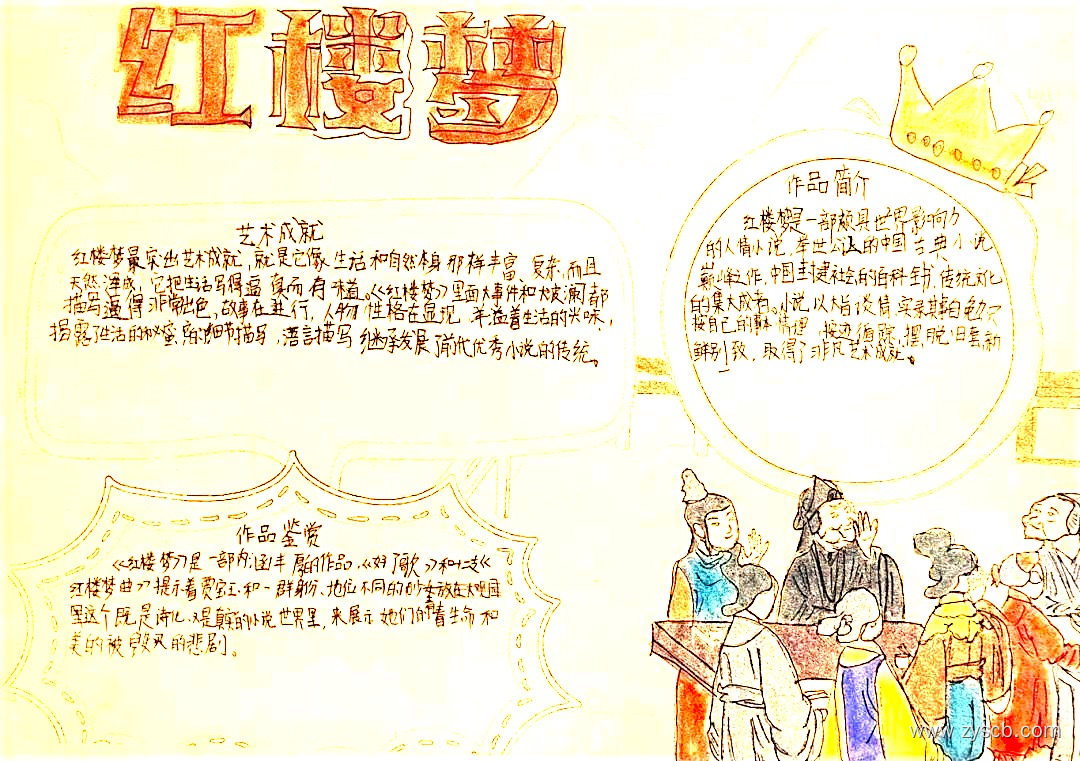 红楼梦
艺术成就
红楼梦最突出艺术成就，就是它像生活和自然本身那样丰富、复杂，而且
天然浑成，它把生活写得逼真而有味道。《红楼梦》里面大事件和大波澜都
描写逼得非常出色，故事在进行，人物性格在显现，洋溢着生活的兴味，
揭露了生活的秘蜜。的细节描写，语言描写继承发展了前代优秀小说的传统。
作品简介
红楼梦是一部颇具世界影响力
的人情小说，举世公认的中国古典小说
巅峰之作，中国封建社会的百科全书，传统文化
的集大成者。小说以大旨谈情，实录其事自勉，只
按自己的事体情理，按迹循踪，摆脱旧套，新
鲜别致，取得了非凡艺术成就。
作品鉴赏
《红楼梦》是一部内涵丰厚的作品，《好了歌》和十二支《
红楼梦曲》提示着贾宝玉和一群身份、地位不同的少女放在大观园
里这个既是诗化又是真的小说世界里，来展示她们的青春生命和
美的被毁灭的悲剧。
www.zyscb.com